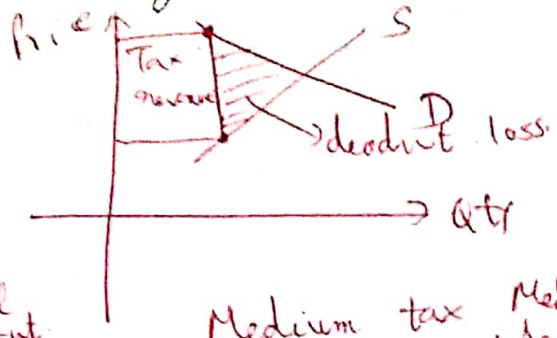 Price
S
Tax
revenue
D
deadwt loss.
Qty
Medium tax Me